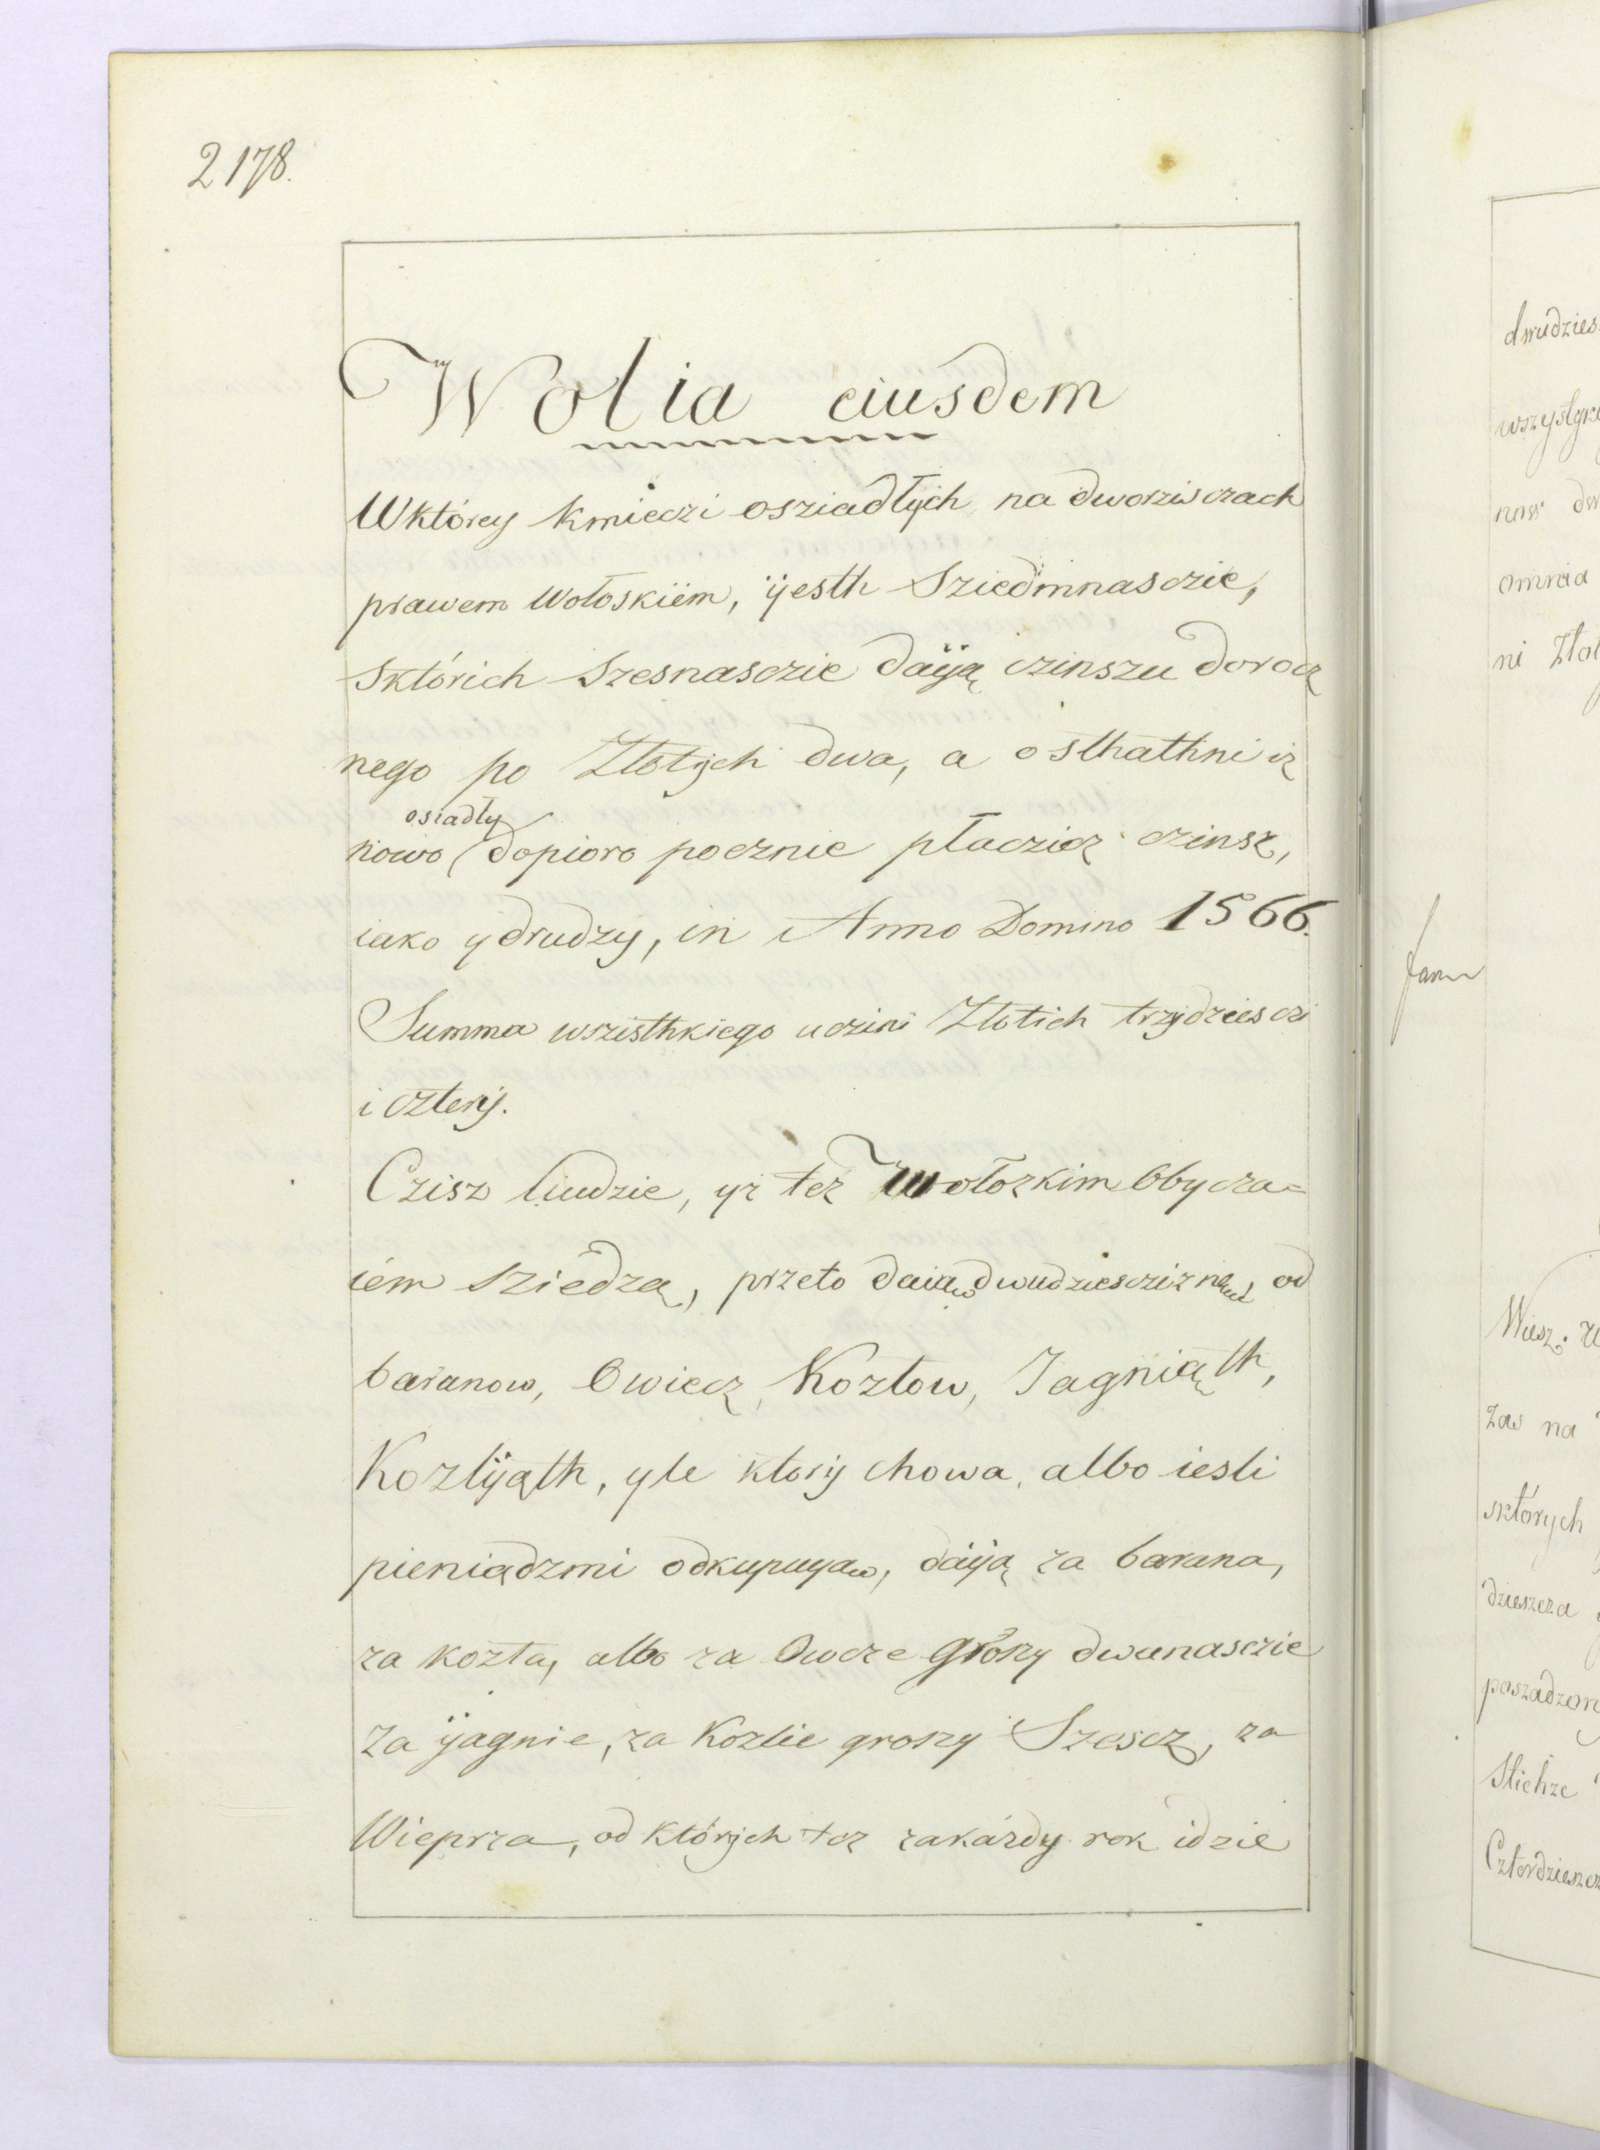 2178.
Wolia eiusdem
Wktórey kmieczi osziadłych na dworzisczach
prawem Wołoskiem, ÿesth Sziedmnasczie,
Sktórich Szesnasczie daÿą czinszu dorocz
nego po Złotÿch dwa, a osthathni iz
nowo osiadły dopioro pocznie płaczicz czinsz,
iako y drudzy, in Anno Domino 1566.
Summa wszisthkiego uczini Złotich trzÿdziesczi
i czterÿ.
Czisz liudzie, yz tez Wołozkim Obycza=
iem sziedzą, przeto daiaw dwudziesciznę, od
baranow, Owiecz, Kozłow, Jagniąth,
Kozlÿąth, yle ktorÿ chowa, albo iesli
pieniądzmi odkupuyaw, daÿą za barana,
za kozła, albo za Owcze groszy dwanasczie
za ÿagnie, za Kozlie groszy Szescz, za
Wieprza, od którÿch tez zakázdy rok idzie
dwudzies
ni Zło
fam
Wiesz.
zas na
sktórych
dzieszcza
poszadzon
Czterdziesz